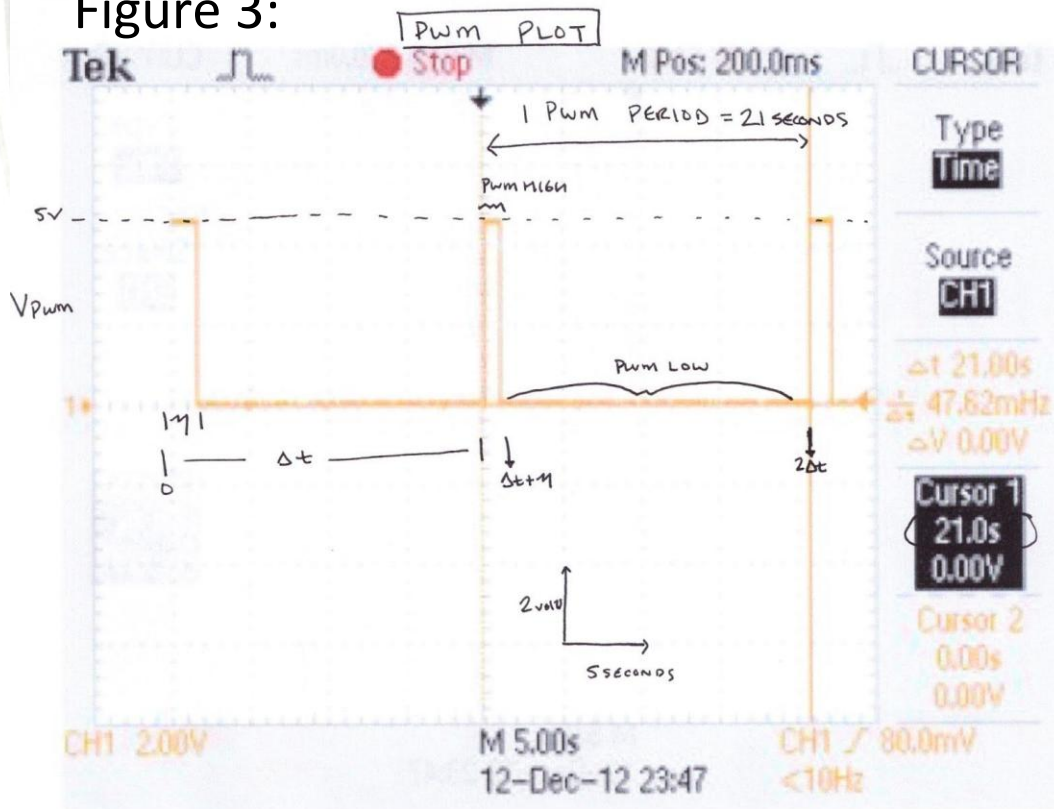 Figure 3:
PWM PLOT
Tek Stop M Pos: 200.0ms CURSOR
1 PWM PERIOD = 21 SECONDS
Type
Time
PWM HIGH
5V
Source
CH1
VPWM
PWM LOW
Δt 21.00s
1/Δt 47.62mHz
ΔV 0.00V
1
η
0
Δt
Δt+η
2Δt
Cursor 1
21.0s
0.00V
2 volts
5 SECONDS
Cursor 2
0.00s
0.00V
CH1 2.00V M 5.00s CH1 / 80.0mV
12-Dec-12 23:47 <10Hz